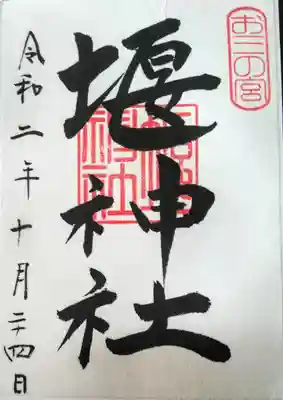 お三の宮
堰神社
堰神社
令和二年十月二十四日